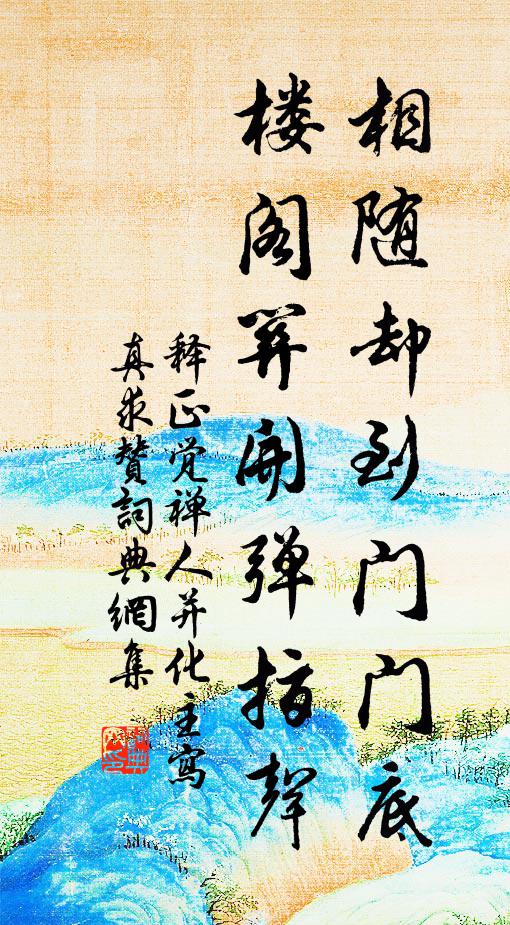 相随却到门门底
楼阁算开弹指声
释正觉禅人并化主写
真求赞詞典網集